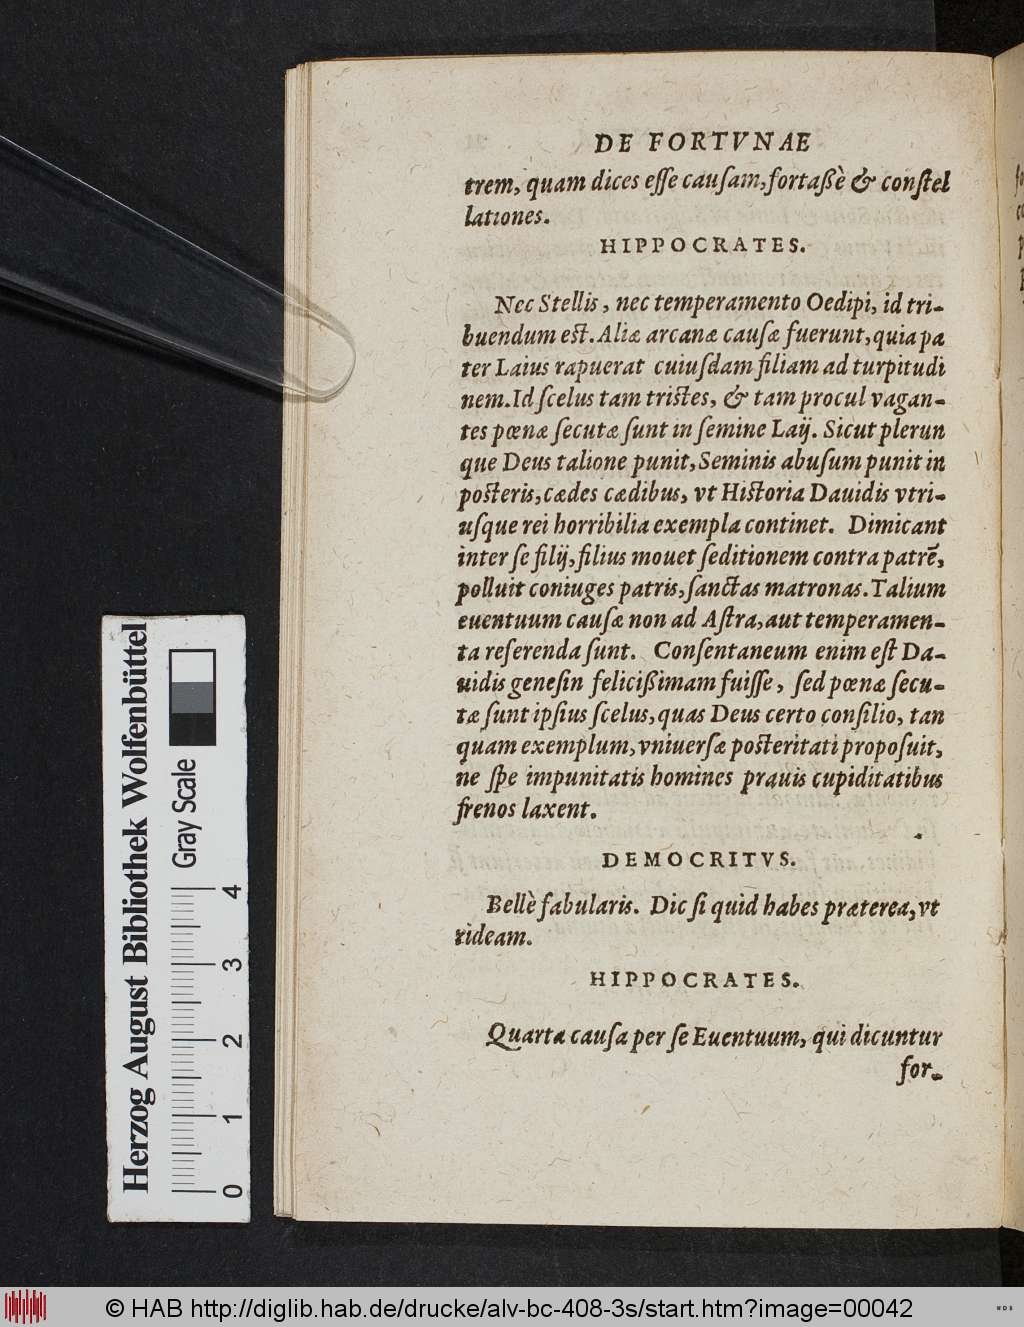 DE FORTVNAE
trem, quam dices esse causam, fortaßè & constel
lationes.
HIPPOCRATES.
Nec Stellis, nec temperamento Oedipi, id tri-
buendum est. Aliæ arcanæ causæ fuerunt, quia pa
ter Laius rapuerat cuiusdam filiam ad turpitudi
nem. Id scelus tam tristes, & tam procul vagan-
tes pœnæ secutæ sunt in semine Laij. Sicut plerun
que Deus talione punit, Seminis abusum punit in
posteris, cædes cædibus, vt Historia Dauidis vtri-
usque rei horribilia exempla continet. Dimicant
inter se filij, filius mouet seditionem contra patrẽ,
polluit coniuges patris, sanctas matronas. Talium
euentuum causæ non ad Astra, aut temperamen-
ta referenda sunt. Consentaneum enim est Da-
uidis genesin felicißimam fuisse, sed pœnæ secu-
tæ sunt ipsius scelus, quas Deus certo consilio, tan
quam exemplum, vniuersæ posteritati proposuit,
ne spe impunitatis homines prauis cupiditatibus
frenos laxent.
DEMOCRITVS.
Bellè fabularis. Dic si quid habes præterea, vt
rideam.
HIPPOCRATES.
Quarta causa per se Euentuum, qui dicuntur
for-
Herzog August Bibliothek Wolfenbüttel
Gray Scale
0 1 2 3 4
© HAB http://diglib.hab.de/drucke/alv-bc-408-3s/start.htm?image=00042